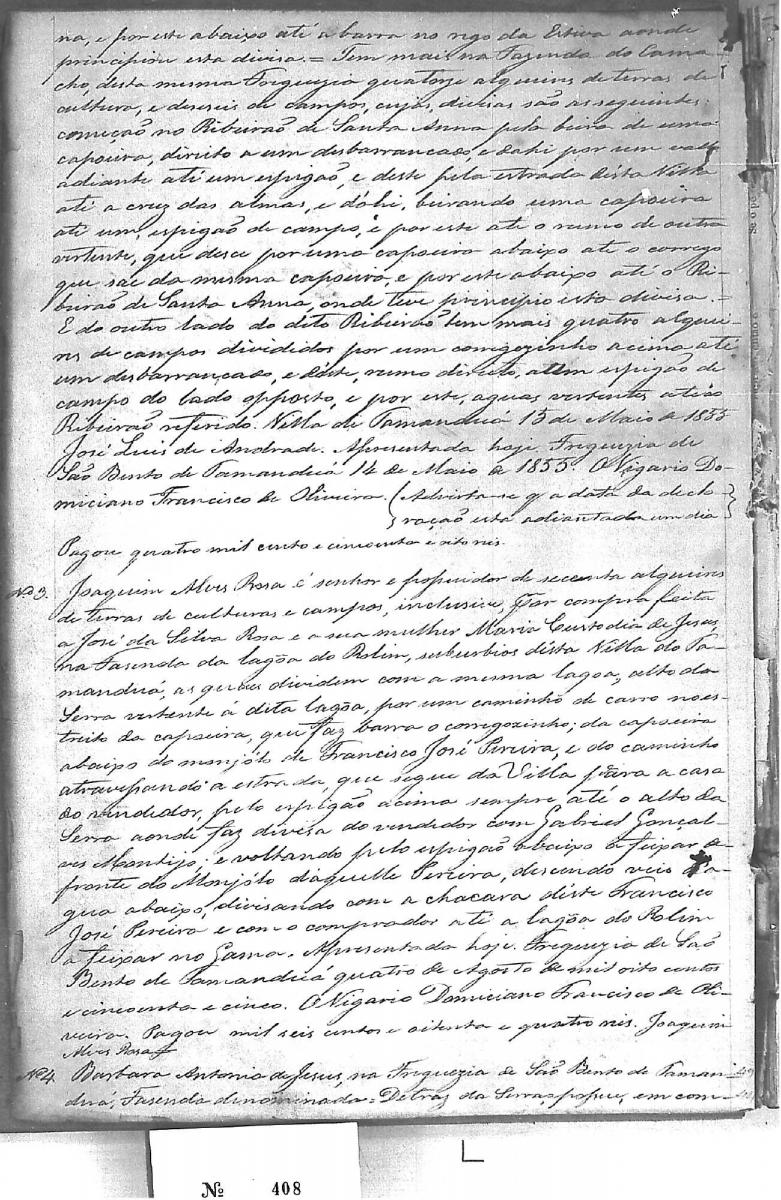 na, e por este abaixo até a barra no rego da Estiva aonde
principiou esta divisa. = Tem mais na Fazenda do Cama-
cho, desta mesma Freguezia quatorze alqueires de terras de
cultura, e deseseis de campos, cujas divisas são as seguintes:
começão no Ribeirão de Santa Anna pela beira de uma
capoeira, direito a um desbarrancado, e dahi por um vallo
adiante até um espigão, e deste pela estrada desta Villa
até a cruz das almas, e dahi, beirando uma capoeira
até um espigão de campo, e por este até o rumo de outra
vertente, que desce por uma capoeira abaixo até o corrego
que sae da mesma capoeira, e por este abaixo até o Ri-
beirão de Santa Anna, onde teve principio esta divisa. =
E do outro lado do dito Ribeirão tem mais quatro alquei-
res de campos divididos por um corregozinho acima até
um desbarrancado, e deste, rumo direito, a um espigão de
campo do lado opposto, e por este, aguas vertentes até ao
Ribeirão referido. Villa de Tamanduá 15 de Maio de 1855
José Luis de Andrade. Apresentada hoje Freguezia de
São Bento de Tamanduá 14 de Maio de 1855. O Vigario Do-
miciano Francisco de Oliveira. (Advirta-se q a data da decla-
ração esta adiantada um dia)
Pagou quatro mil cento e cincoenta e oito reis.
No 3. Joaquim Alves Rosa é senhor e possuidor de secenta alqueires
de terras de culturas e campos, inclusive, por compra feita
a José da Silva Rosa e a sua mulher Maria Custodia de Jesus,
na Fasenda da lagôa do Rolim, suburbios desta Villa do Ta-
manduá, as quaes dividem com a mesma lagoa, alto da
Serra vertente á dita lagôa, por um caminho de carro no es-
treito da capoeira, que faz barra o corregozinho; da capoeira
abaixo do monjôlo de Francisco José Pereira, e do caminho
atravessando a estrada, que segue da Villa para a casa
do vendedor, pelo espigão acima sempre até o alto da
Serra aonde faz divisa do vendedor com Gabriel Gonçal-
ves Montijo; e voltando pelo espigão abaixo a feixar de-
fronte do Monjôlo daquelle Pereira, descendo veio d'a-
gua abaixo, divisando com a chacara deste Francisco
José Pereira e com o comprador até a lagôa do Rolim
a feixar no Gama. Apresentada hoje. Freguezia de São
Bento de Tamanduá quatro de Agosto de mil oito centos
e cincoenta e cinco. O Vigario Domiciano Francisco de Oli-
veira. Pagou mil seis centos e oitenta e quatro reis. Joaquim
Alves Rosa
No 4. Barbara Antonia de Jesus, na Freguezia de São Bento de Taman-
dua, Fasenda denominada = Detraz da Serra, possue, em com-
No 408